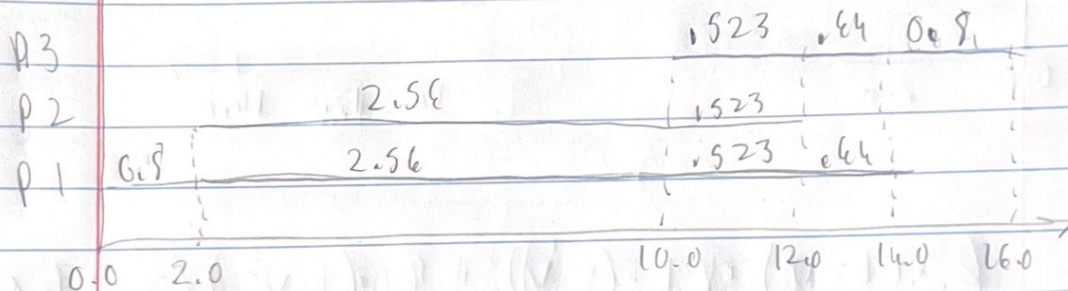 P3 .523 .44 0.8
P2 2.56 .523
P1 0.8 2.56 .523 .44
0.0 2.0 10.0 12.0 14.0 16.0